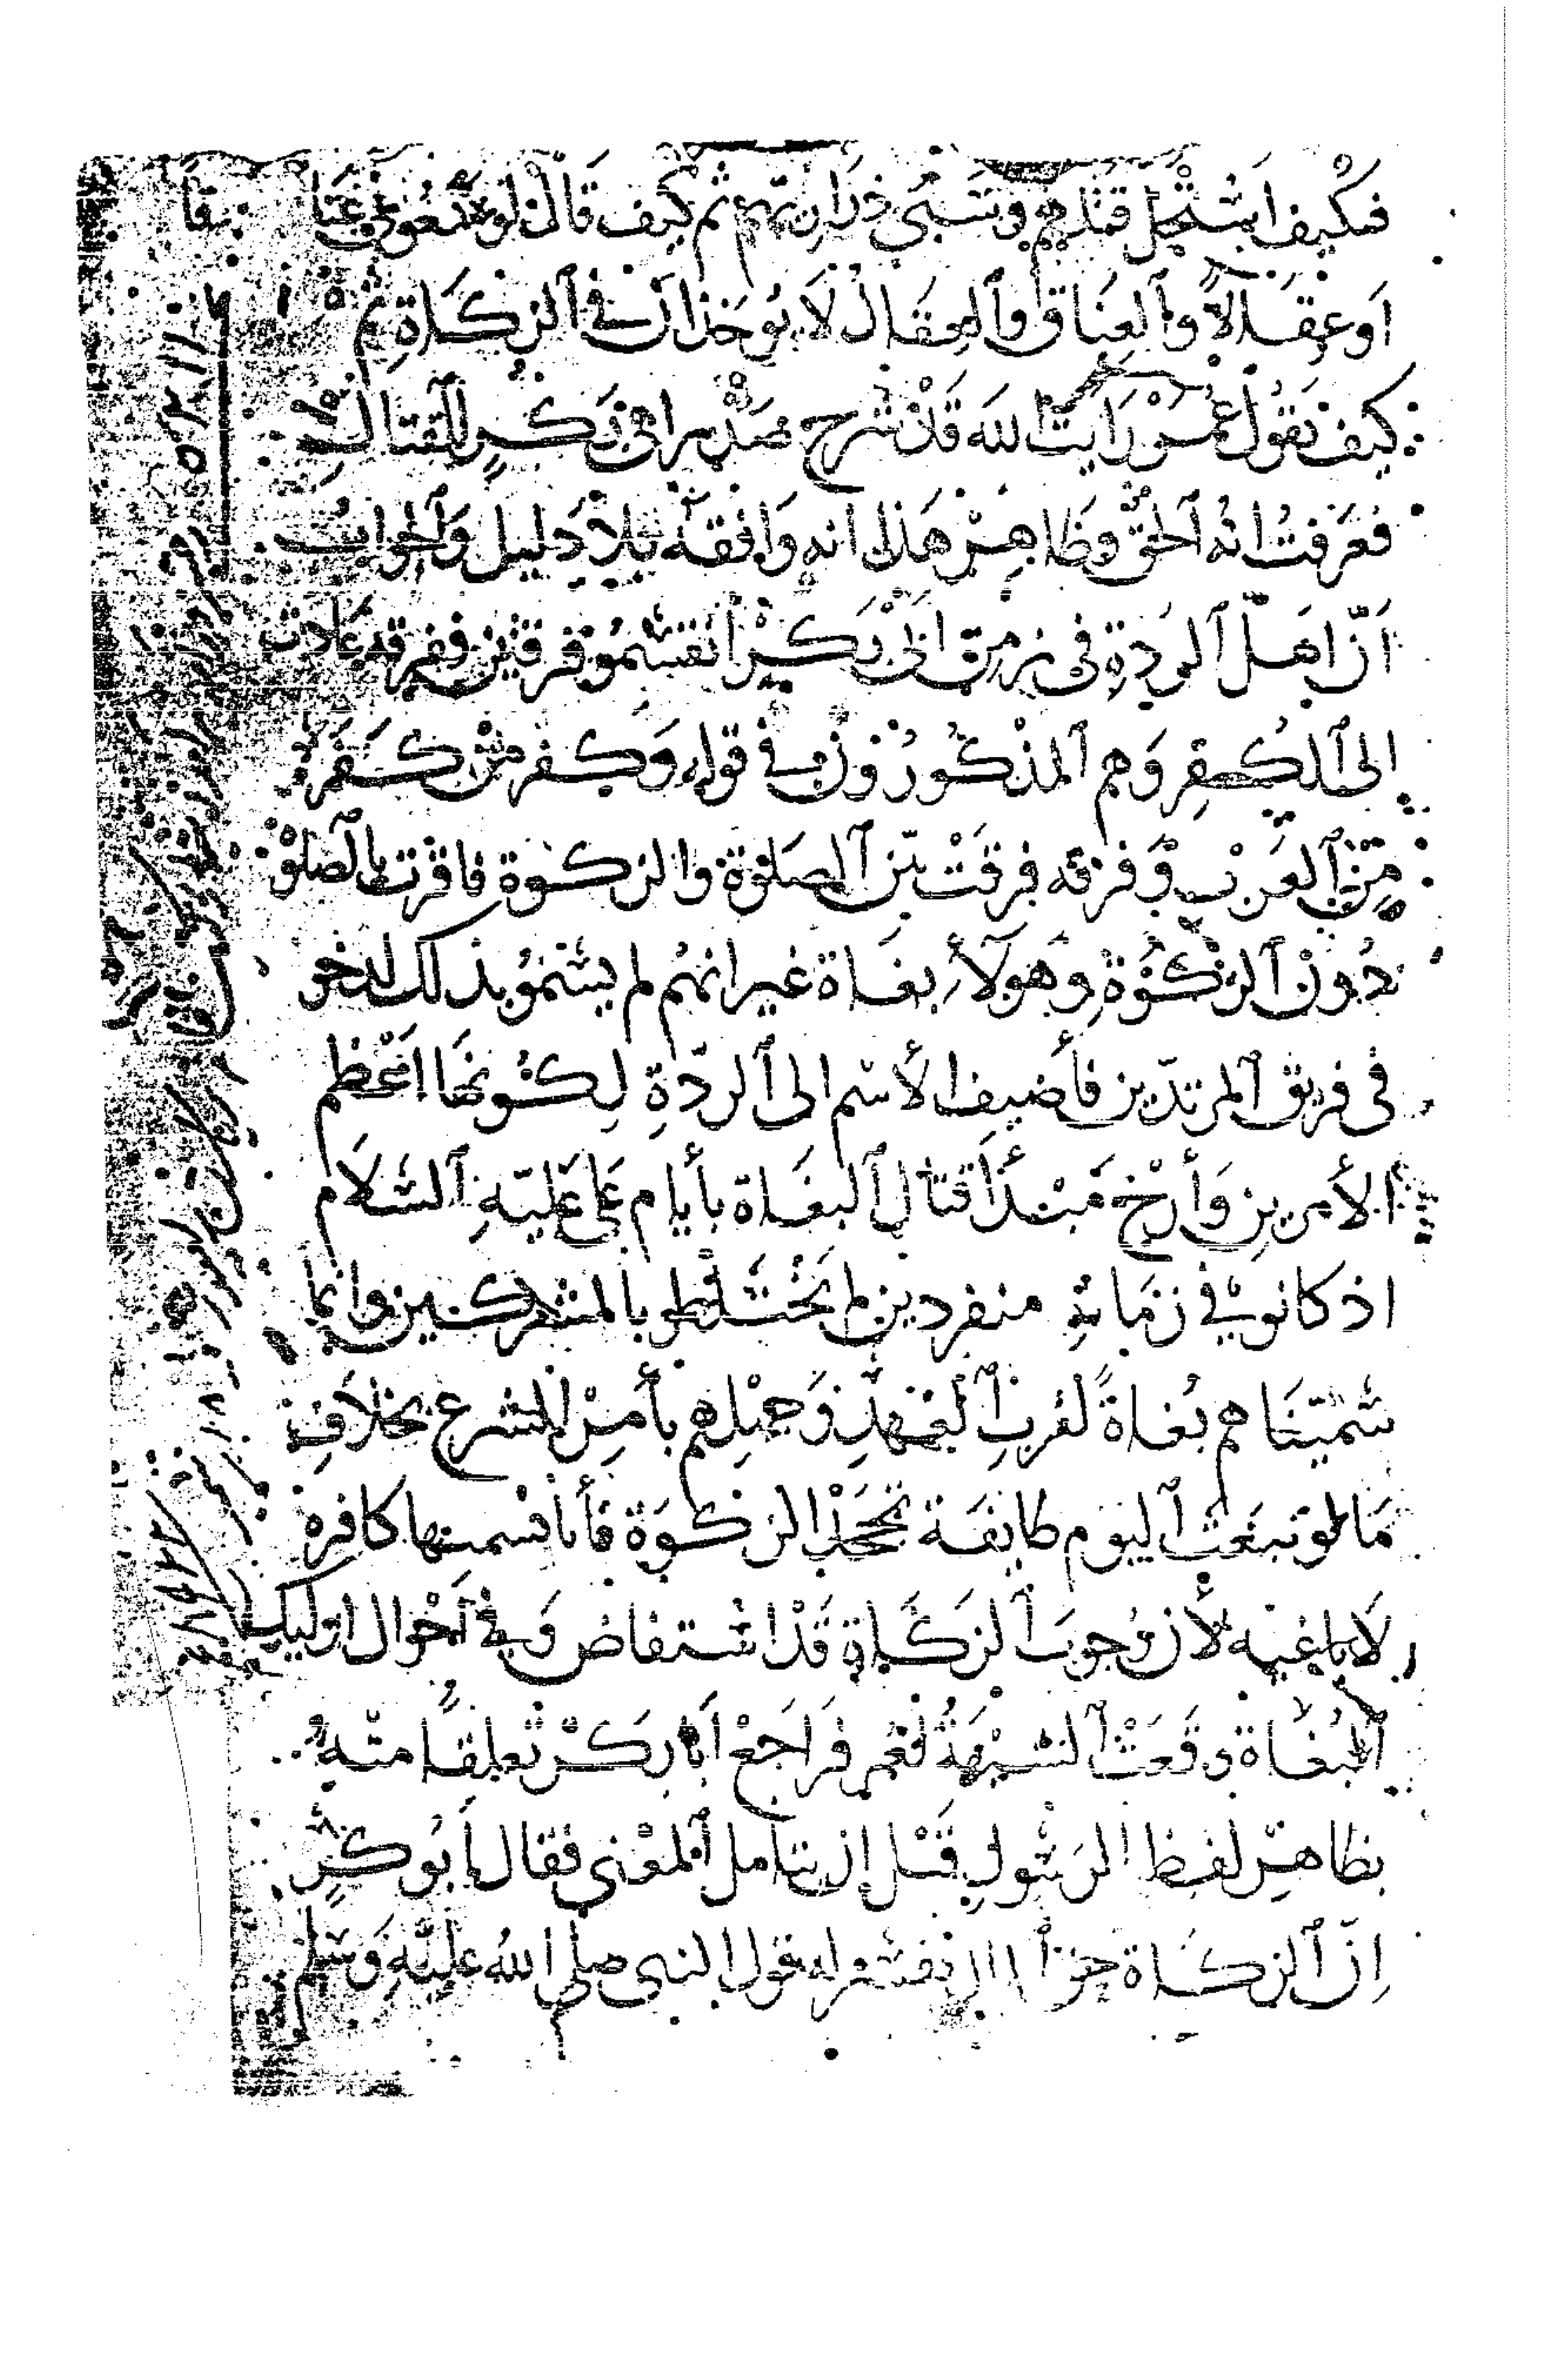 فكيف استحل قتلهم وسبي ذراريهم ثم كيف قال لو منعوني عناقا
او عقالاً والعناق والعقال لا يوخذان في الزكاة ثم
كيف نقول عمر رايت الله قد شرح صدر ابي بكر للقتال
فعرفت انه الحق وظاهر هذا انه وافقه بلا دليل والجواب
انّ اهل الردة في زمن ابي بكر انقسموا فرقتين ففرقة عادت
الى الكفر وهم المذكورون في قوله وكفر من كفر
من العرب وفرقه فرقت بين الصلوة والزكوة فاقرت بالصلوة
دون الزكوة وهولاء بغاة غير انهم لم يسمو بذلك لدخو
في فريق المرتدّين فأضيف الأسم الى الردّة لكونها اعظم
الأمرين وأرخ مبتدأ قتال البغاة بأيام علي عليه السلام
اذ كانو في زمانه منفردين لم يختلطو بالمشركين وانما
سميناهم بُغاةً لقرب العهد وجهلهم بأمر الشرع بخلاف
ما لو تبغت اليوم طايفة تجحد الزكوة فأنا نسميها كافره
لا باغيه لأن وجوب الزكاة قد استفاض وفي احوال اوليك
البغاة وقعت الشبهة لعمر فراجع ابا بكر تعلقاً منه
بظاهر لفظ الرسول قبل ان يتامل المعنى فقال ابو بكر
انّ الزكاة حق المال يفسر له قول النبي صلى الله عليه وسلم